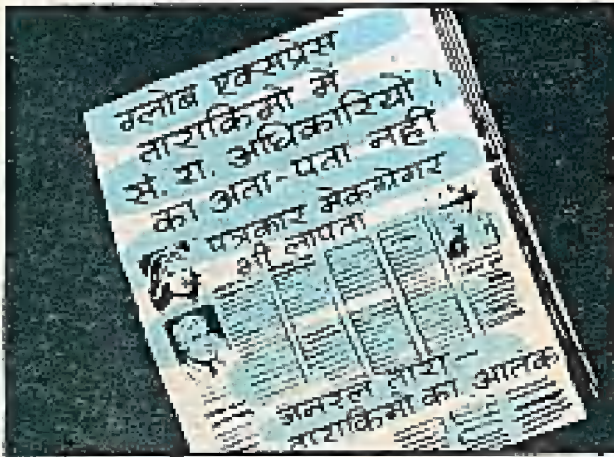 ग्लोब एक्सप्रेस
ताराकिमो में
सं. रा. अधिकारियों
का अता-पता नहीं
पत्रकार मेकग्रेगर
भी लापता
जनरल तारा—
ताराकिमो का आतंक